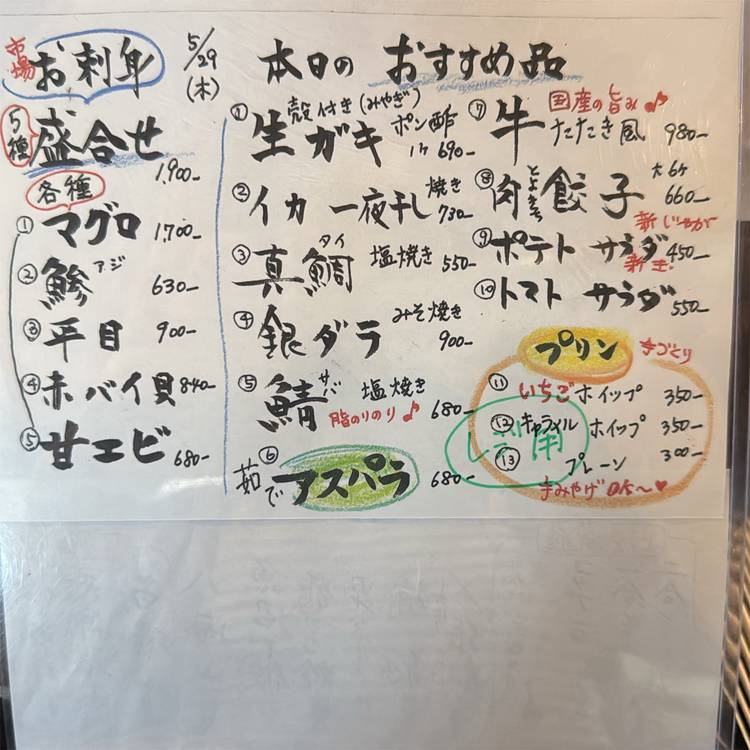 市場
お刺身
5/29
(木)
5種
盛合せ
1,900-
各種
① マグロ 1,700-
② 鯵 アジ 630-
③ 平目 900-
④ 赤バイ貝 840-
⑤ 甘エビ 680-
本日の おすすめ品
① 殻付き(みやぎ)
生ガキ ポン酢
1ケ 690-
② イカ 一夜干し 焼き
730-
③ 真鯛 タイ 塩焼き 550-
④ 銀ダラ みそ焼き
900-
⑤ 鯖 サバ 塩焼き
脂のりのり♪ 680-
⑥ 茹で アスパラ 680-
国産の旨み♪
⑦ 牛 たたき風 980-
⑧ 肉 餃子 大6ケ
660-
新じゃが
⑨ ポテト サラダ 450-
⑩ トマト サラダ 550-
プリン 手づくり
⑪ いちごホイップ 350-
⑫ キャラメル ホイップ 350-
⑬ プレーン 300-
手みやげOK〜♥